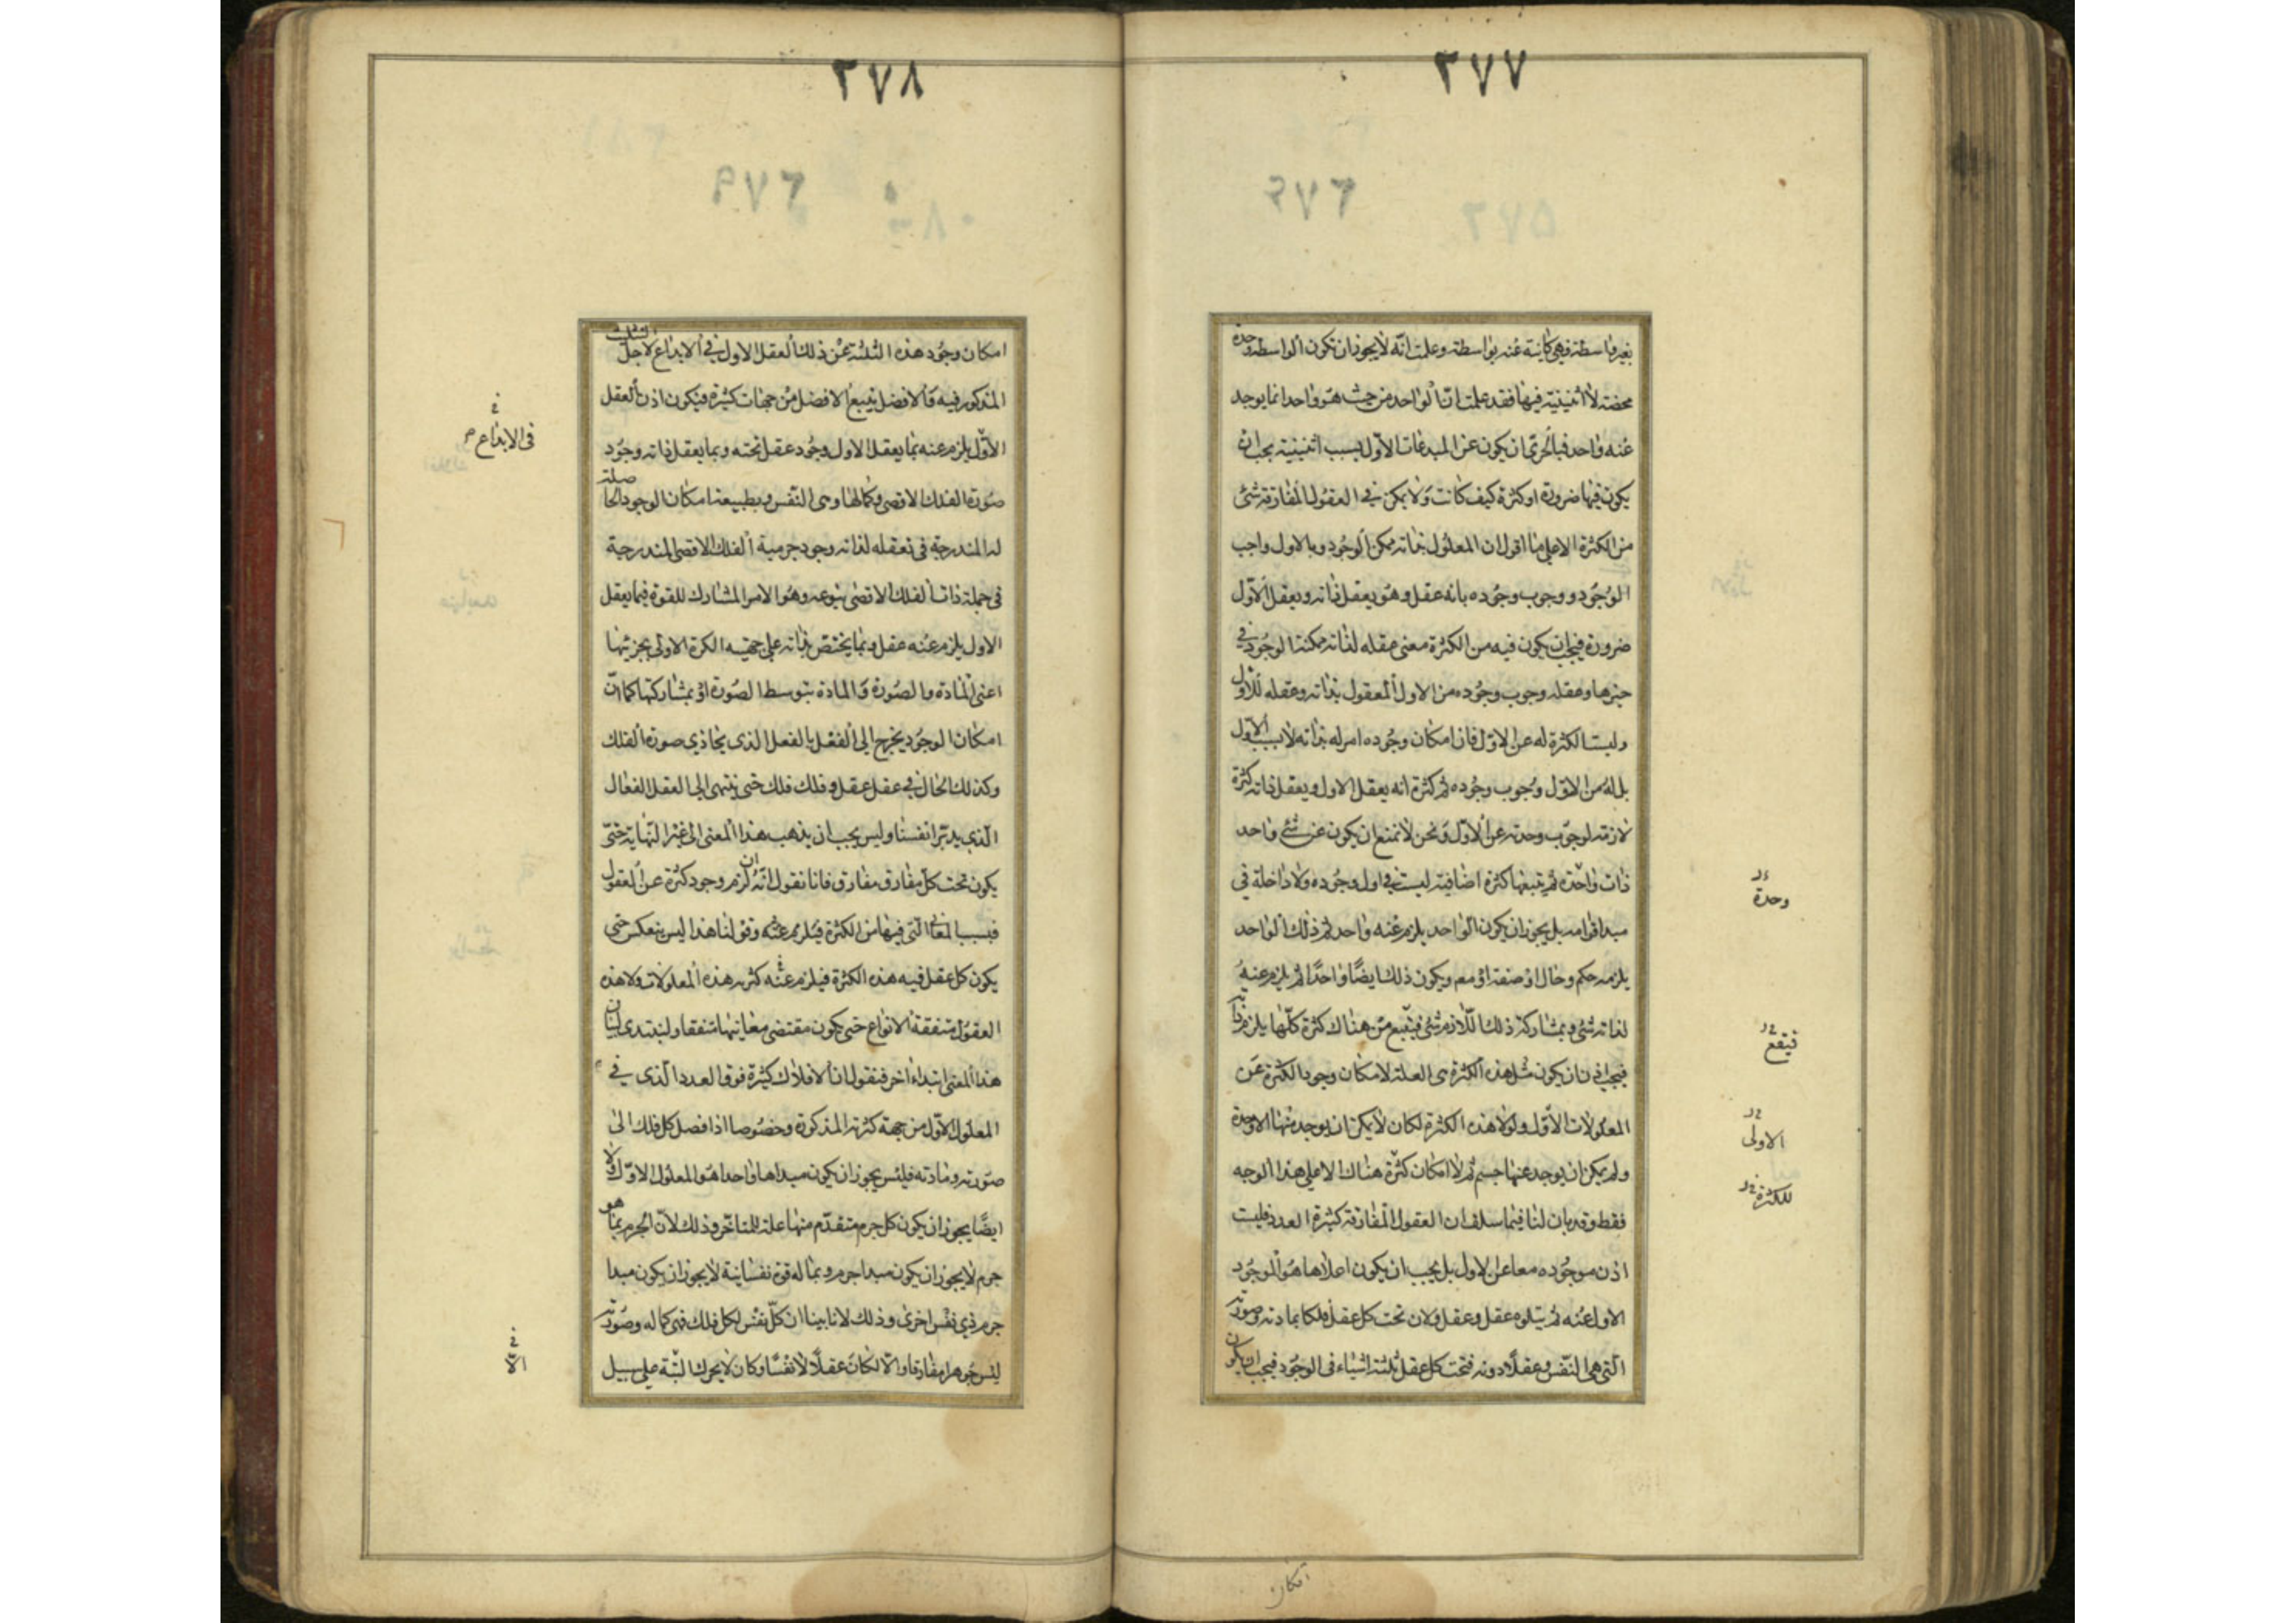 ٢٧٧
بغير واسطة فهى كاينة عنه بواسطة وعلمت انّه لا يجوز ان تكون الواسطة وحدة
محضة لا اثنينية فيها فقد علمت انّ الواحد من حيث هو واحد انما يوجد
عنه واحد فبالحرىّ ان يكون عن المبدعات الاوّل بسبب اثنينية يجب ان
يكون فيها ضرورة او كثرة كيف كانت ولا يمكن فى العقول المفارقة شئ
من الكثرة الا على ما اقول ان المعلول بذاته ممكن الوجود وبالاول واجب
الوجود ووجوب وجوده بانه عقل وهو يعقل ذاته ويعقل الاوّل
ضرورة فيجب ان يكون فيه من الكثرة معنى عقله لذاته ممكنة الوجود فى
حيزها وعقله وجوب وجوده من الاول المعقول بذاته وعقله للاول
وليست الكثرة له عن الاوّل فان امكان وجوده امر له بذاته لا بسبب الاوّل
بل له من الاوّل وجوب وجوده ثم كثرة انه يعقل الاول ويعقل ذاته كثرة
لازمة لوجوب وحدته عن الاوّل ونحن لا نمنع ان يكون عن شئ واحد
ذات واحدة ثم تتبعها كثرة اضافية ليست فى اول وجوده ولا داخلة فى
مبدا قوامه بل يجوز ان يكون الواحد يلزم عنه واحد ثم ذلك الواحد
يلزمه حكم وحال او صفة او مع ويكون ذلك ايضًا واحدًا ثم يلزم عنه
لذاته شئ وبمشاركة ذلك اللّازم شئ فيتبع من هناك كثرة كلّها يلزم ذاته
فيجب اذن ان يكون مثل هذه الكثرة هى العلة لامكان وجود الكثرة عن
المعلولات الأوّل ولولا هذه الكثرة لكان لا يمكن ان يوجد منها الا وحدة
ولم يمكن ان يوجد عنها جسم ثم لا امكان كثرة هناك الا على هذا الوجه
فقط وقد بان لنا فيما سلف ان العقول المفارقة كثيرة العدد فليست
اذن موجوده معا عن الاول بل يجب ان يكون اعلاها هو الموجود
الاول عنه ثم يتلوه عقل وعقل ولان تحت كل عقل فلكا بمادته وصورته
التى هى النّفس وعقلًا دونه فتحت كل عقل ثلثة اشياء فى الوجود فيجب ان يكون
وحدة
فيقع
الاولى
للكثرة
امكان
٢٧٨
امكان وجود هذه الثلثة عن ذلك العقل الاول فى الابداع لاجل التثليث
المذكور فيه والافضل يتبع الافضل من جهات كثيرة فيكون اذن العقل
الأوّل يلزم عنه بما يعقل الاول وجود عقل تحته وبما يعقل ذاته وجود
صورة الفلك الاقصى وكمالها وهى النّفس وبطبيعة امكان الوجود الحاصلة
له المندرجة فى تعقله لذاته وجود جرمية الفلك الاقصى المندرجة
فى جملة ذات الفلك الاقصى بنوعه وهو الامر المشارك للقوة فبما يعقل
الاول يلزم عنه عقل وبما يختصّ بذاته على جهتيه الكرة الاولى بجزئيها
اعنى المادة والصورة والمادة بتوسط الصورة او بمشاركتها كما انّ
امكان الوجود يخرج الى الفعل بالفعل الذى يحاذى صورة الفلك
وكذلك الحال فى عقل عقل وفلك فلك حتى ينتهى الى العقل الفعال
الّذى يدبّر انفسنا وليس يجب ان يذهب هذا المعنى الى غير النّهاية حتّى
يكون تحت كلّ مفارق مفارق فانا نقول انّه ان لزم وجود كثرة عن العقول
فبسبب المعانى التى فيها من الكثرة فيلزم عنه وقولنا هذا ليس ينعكس حتى
يكون كل عقل فيه هذه الكثرة فيلزم عنه كثرته هذه المعلولات ولا هذه
العقول متفقة الانواع حتى يكون مقتضى معانيها متفقا ولنبتدى لبيان
هذا المعنى ابتداء اخر فنقول ان الافلاك كثيرة فوق العدد الّذى فى
المعلول الاوّل من جهة كثرته المذكورة وخصوصا اذا فصل كل فلك الى
صورته ومادته فليس يجوز ان يكون مبداها واحدا هو المعلول الاوّل ولا
ايضًا يجوز ان يكون كل جرم متقدّم منها علة للمتاخّر وذلك لانّ الجرم بما هو
جرم لا يجوز ان يكون مبدا جرم وبما له قوة نفسانية لا يجوز ان يكون مبدا
جرم ذى نفس اخرى وذلك لانا بينا ان كلّ نفس لكل فلك فهى كماله وصورته
ليس جوهرا مفارقا والّا لكان عقلًا لا نفسًا وكان لا يحرك البتّة على سبيل
فى الابداع
الّا